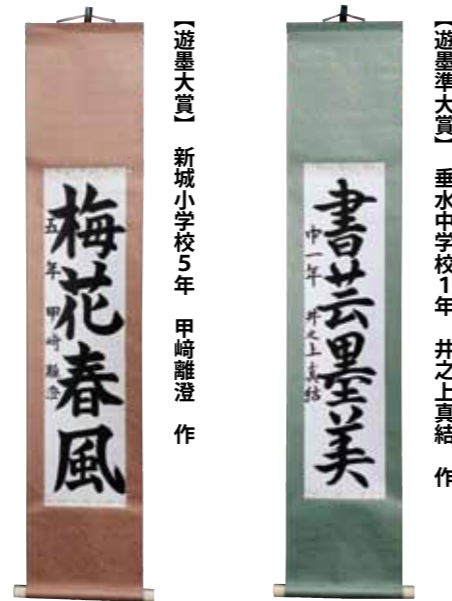 【遊墨準大賞】　垂水中学校1年　井之上真結　作
書芸墨美
中一年　井之上真結
【遊墨大賞】　新城小学校5年　甲﨑離澄　作
梅花春風
五年　甲﨑離澄